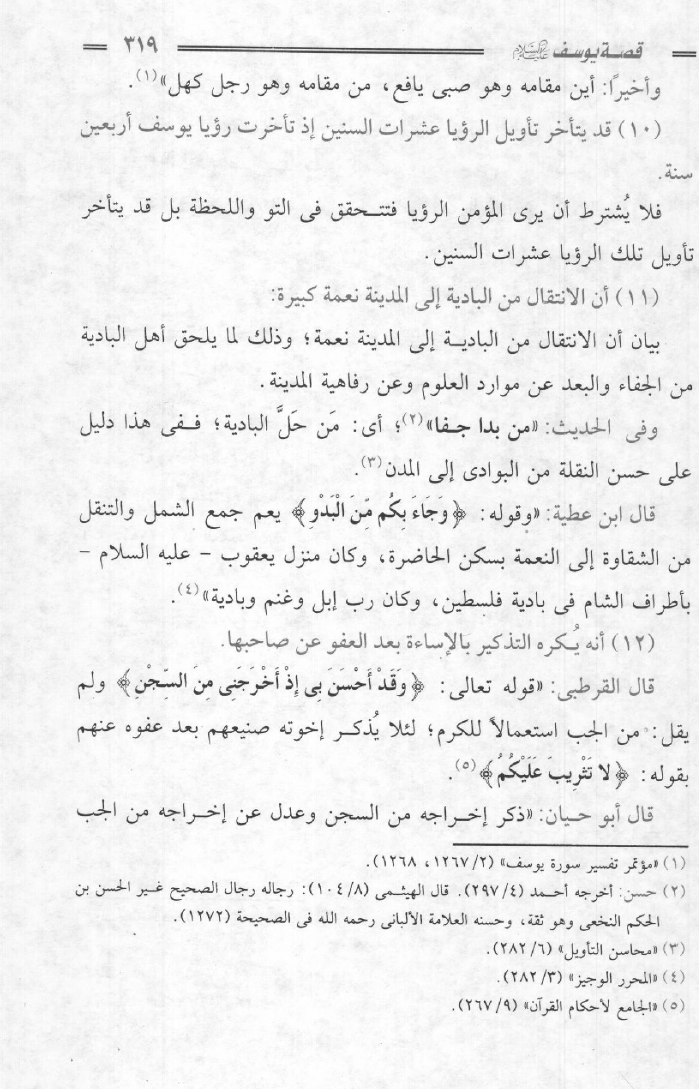 قصة يوسف عليه السلام ٣١٩
وأخيرًا: أين مقامه وهو صبى يافع، من مقامه وهو رجل كهل»(١).
(١٠) قد يتأخر تأويل الرؤيا عشرات السنين إذ تأخرت رؤيا يوسف أربعين
سنة.
فلا يُشترط أن يرى المؤمن الرؤيا فتتحقق فى التو واللحظة بل قد يتأخر
تأويل تلك الرؤيا عشرات السنين.
(١١) أن الانتقال من البادية إلى المدينة نعمة كبيرة:
بيان أن الانتقال من البادية إلى المدينة نعمة؛ وذلك لما يلحق أهل البادية
من الجفاء والبعد عن موارد العلوم وعن رفاهية المدينة.
وفى الحديث: «من بدا جفا»(٢)؛ أى: مَن حَلَّ البادية؛ ففى هذا دليل
على حسن النقلة من البوادى إلى المدن(٣).
قال ابن عطية: «وقوله: ﴿وَجَاءَ بِكُم مِّنَ الْبَدْوِ﴾ يعم جمع الشمل والتنقل
من الشقاوة إلى النعمة بسكن الحاضرة، وكان منزل يعقوب - عليه السلام -
بأطراف الشام فى بادية فلسطين، وكان رب إبل وغنم وبادية»(٤).
(١٢) أنه يُكره التذكير بالإساءة بعد العفو عن صاحبها.
قال القرطبى: «قوله تعالى: ﴿وَقَدْ أَحْسَنَ بِى إِذْ أَخْرَجَنِى مِنَ السِّجْنِ﴾ ولم
يقل: من الجب استعمالاً للكرم؛ لئلا يُذكر إخوته صنيعهم بعد عفوه عنهم
بقوله: ﴿لا تَثْرِيبَ عَلَيْكُمُ﴾(٥).
قال أبو حيان: «ذكر إخراجه من السجن وعدل عن إخراجه من الجب
(١) «مؤتمر تفسير سورة يوسف» (٢/ ١٢٦٧، ١٢٦٨).
(٢) حسن: أخرجه أحمد (٤/ ٢٩٧). قال الهيثمى (٨/ ١٠٤): رجاله رجال الصحيح غير الحسن بن
الحكم النخعى وهو ثقة، وحسنه العلامة الألبانى رحمه الله فى الصحيحة (١٢٧٢).
(٣) «محاسن التأويل» (٦/ ٢٨٢).
(٤) «المحرر الوجيز» (٣/ ٢٨٢).
(٥) «الجامع لأحكام القرآن» (٩/ ٢٦٧).